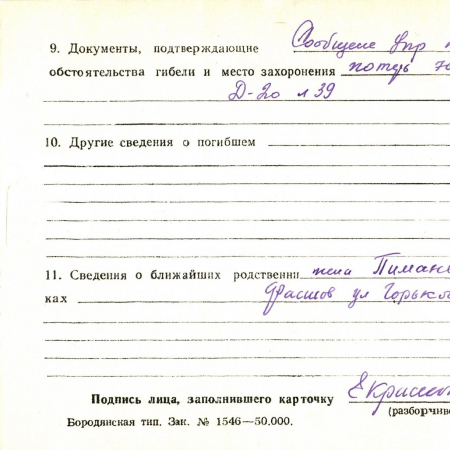 9. Документы, подтверждающие Сообщение Упр
обстоятельства гибели и место захоронения потерь
Д-20 л 39
10. Другие сведения о погибшем
11. Сведения о ближайших родственни жена
ках ул Горьк
Подпись лица, заполнившего карточку
(разборчив
Бородянская тип. Зак. № 1546—50.000.